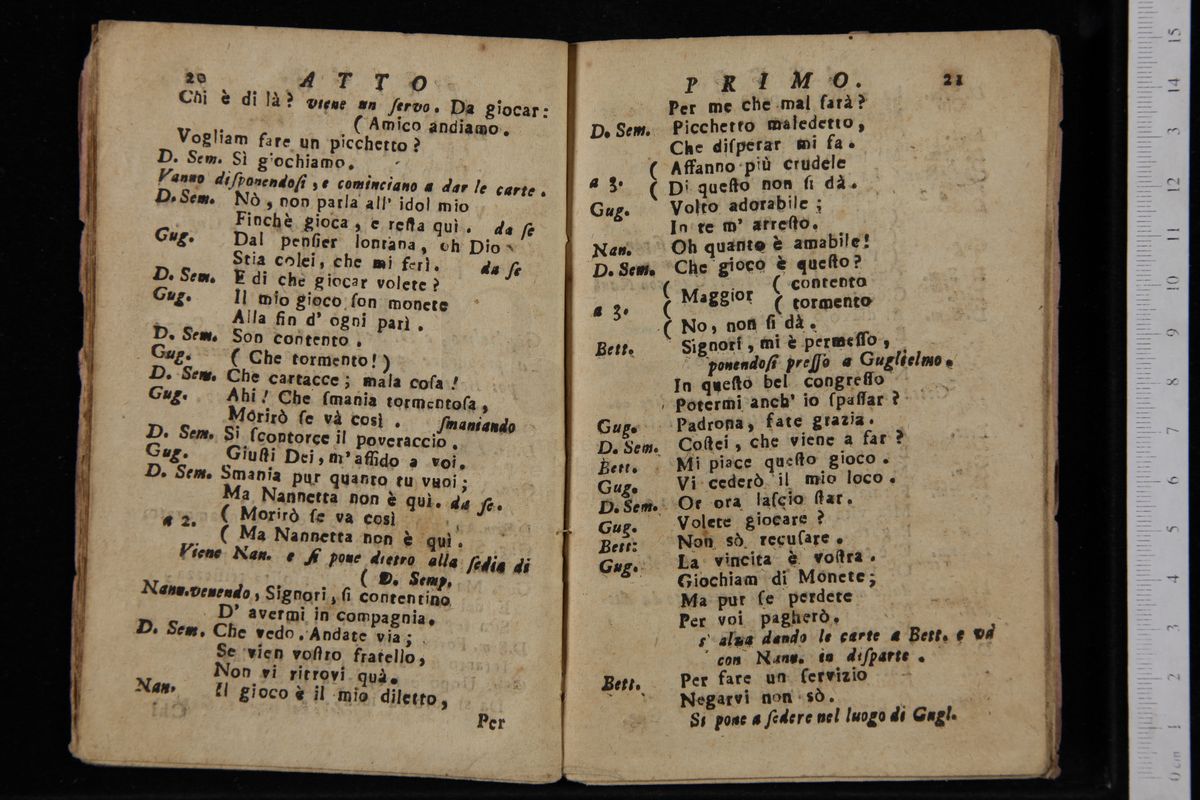 20 ATTO
Chi è di là? viene un ſervo. Da giocar:
( Amico andiamo.
Vogliam fare un picchetto?
D. Sem. Sì giochiamo.
Vanno diſponendoſi, e cominciano a dar le carte.
D. Sem. Nò, non parla all' idol mio
Finchè gioca, e reſta quì. da ſe
Gug. Dal penſier lontana, oh Dio
Stia colei, che mi ferì. da ſe
D. Sem. E di che giocar volete?
Gug. Il mio gioco ſon monete
Alla fin d' ogni parì.
D. Sem. Son contento.
Gug. ( Che tormento! )
D. Sem. Che cartacce; mala coſa!
Gug. Ahi! Che ſmania tormentoſa,
Morirò ſe và così. ſmaniando
D. Sem. Si ſcontorce il poveraccio.
Gug. Giuſti Dei, m'affido a voi.
D. Sem. Smania pur quanto tu vuoi;
Ma Nannetta non è quì. da ſe.
a 2. ( Morirò ſe va così
( Ma Nannetta non è quì.
Viene Nan. e ſi pone dietro alla ſedia di
( D. Semp.
Nann. venendo, Signori, ſi contentino
D' avermi in compagnia.
D. Sem. Che vedo. Andate via;
Se vien voſtro fratello,
Non vi ritrovi quà.
Nan. Il gioco è il mio diletto,
Per
PRIMO. 21
Per me che mal farà?
D. Sem. Picchetto maledetto,
Che diſperar mi fa.
( Affanno più crudele
a 3. ( Di queſto non ſi dà.
Gug. Volto adorabile;
In te m' arreſto.
Nan. Oh quanto è amabile!
D. Sem. Che gioco è queſto?
( ( contento
a 3. ( Maggior ( tormento
( No, non ſi dà.
Bett. Signori, mi è permeſſo,
ponendoſi preſſo a Guglielmo.
In queſto bel congreſſo
Potermi anch' io ſpaſſar?
Gug. Padrona, fate grazia.
D. Sem. Coſtei, che viene a far?
Bett. Mi piace queſto gioco.
Gug. Vi cederò il mio loco.
D. Sem. Or ora laſcio ſtar.
Gug. Volete giocare?
Bett: Non sò recuſare.
Gug. La vincita è voſtra.
Giochiam di Monete;
Ma pur ſe perdete
Per voi pagherò.
s' alza dando le carte a Bett. e và
con Nann. in diſparte.
Bett. Per fare un ſervizio
Negarvi non sò.
Si pone a ſedere nel luogo di Gugl.
15
13
12
11
10
9
8
7
6
5
4
3
2
1
0 cm